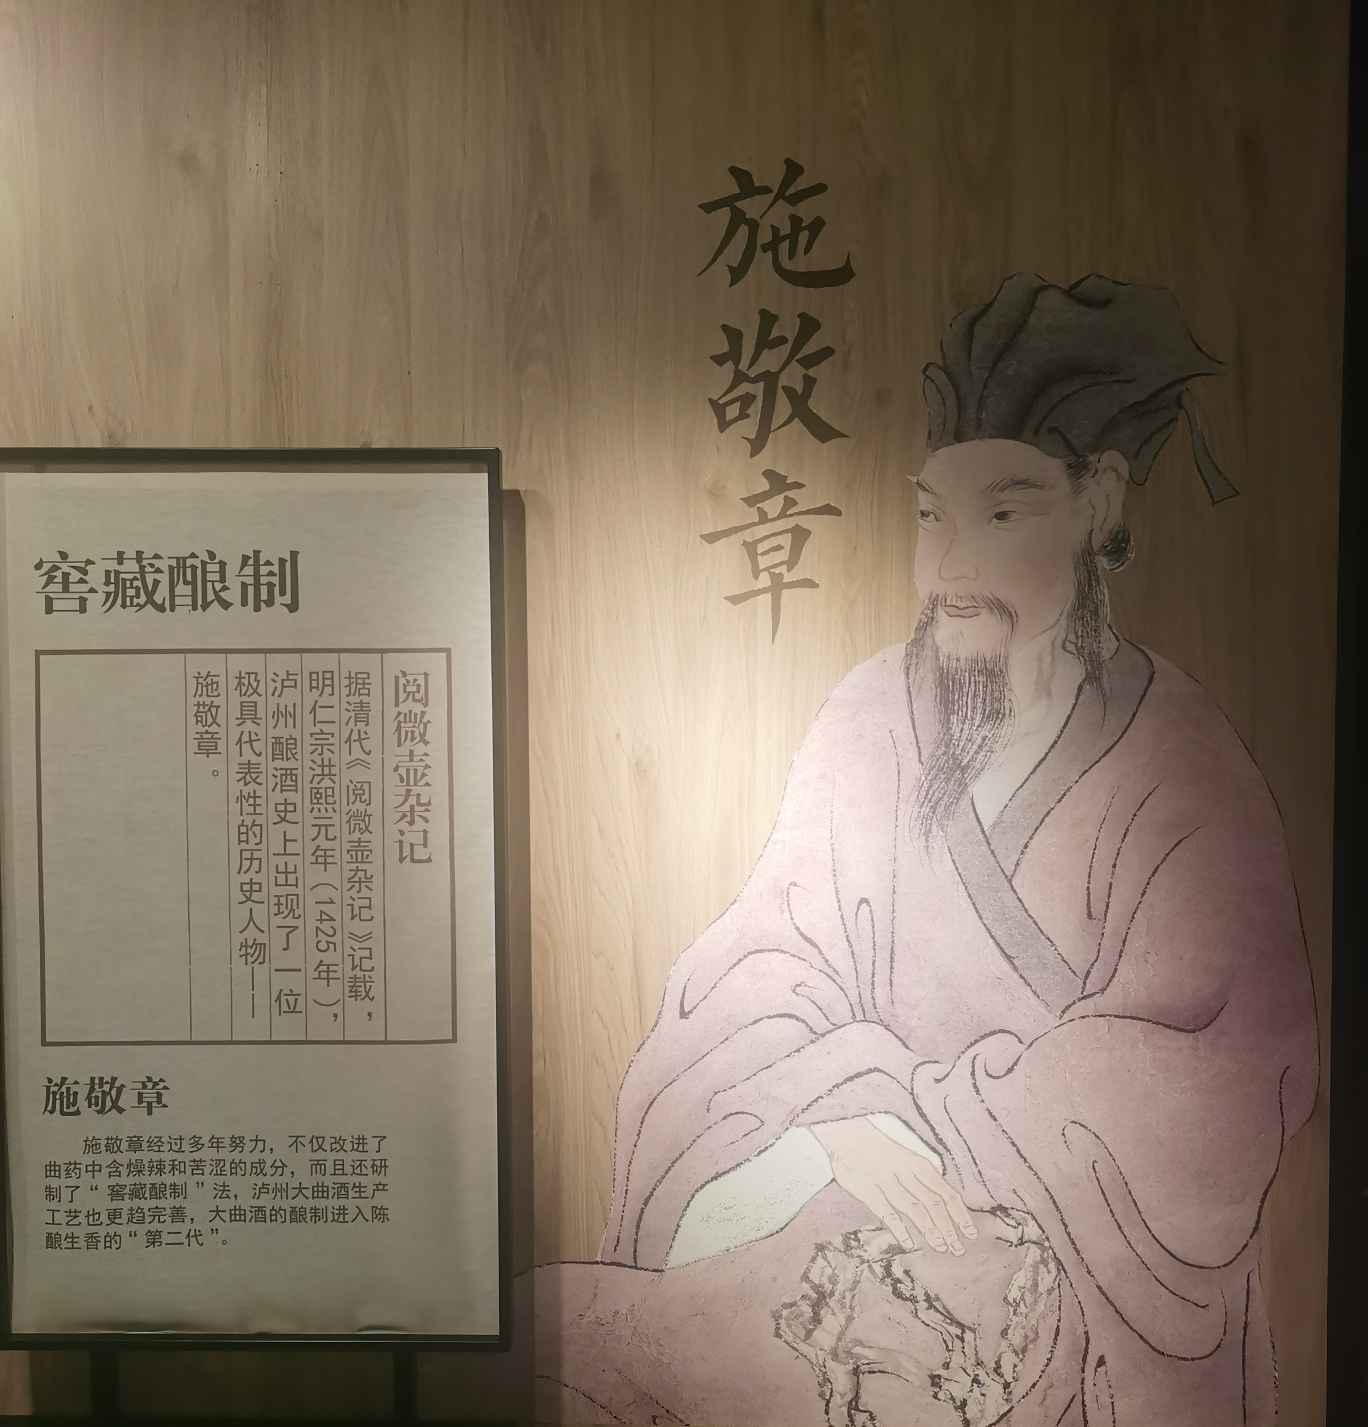 施敬章
窖藏酿制
阅微壶杂记
据清代《阅微壶杂记》记载，
明仁宗洪熙元年（1425年），
泸州酿酒史上出现了一位
极具代表性的历史人物——
施敬章。
施敬章
施敬章经过多年努力，不仅改进了
曲药中含燥辣和苦涩的成分，而且还研
制了“窖藏酿制”法，泸州大曲酒生产
工艺也更趋完善，大曲酒的酿制进入陈
酿生香的“第二代”。